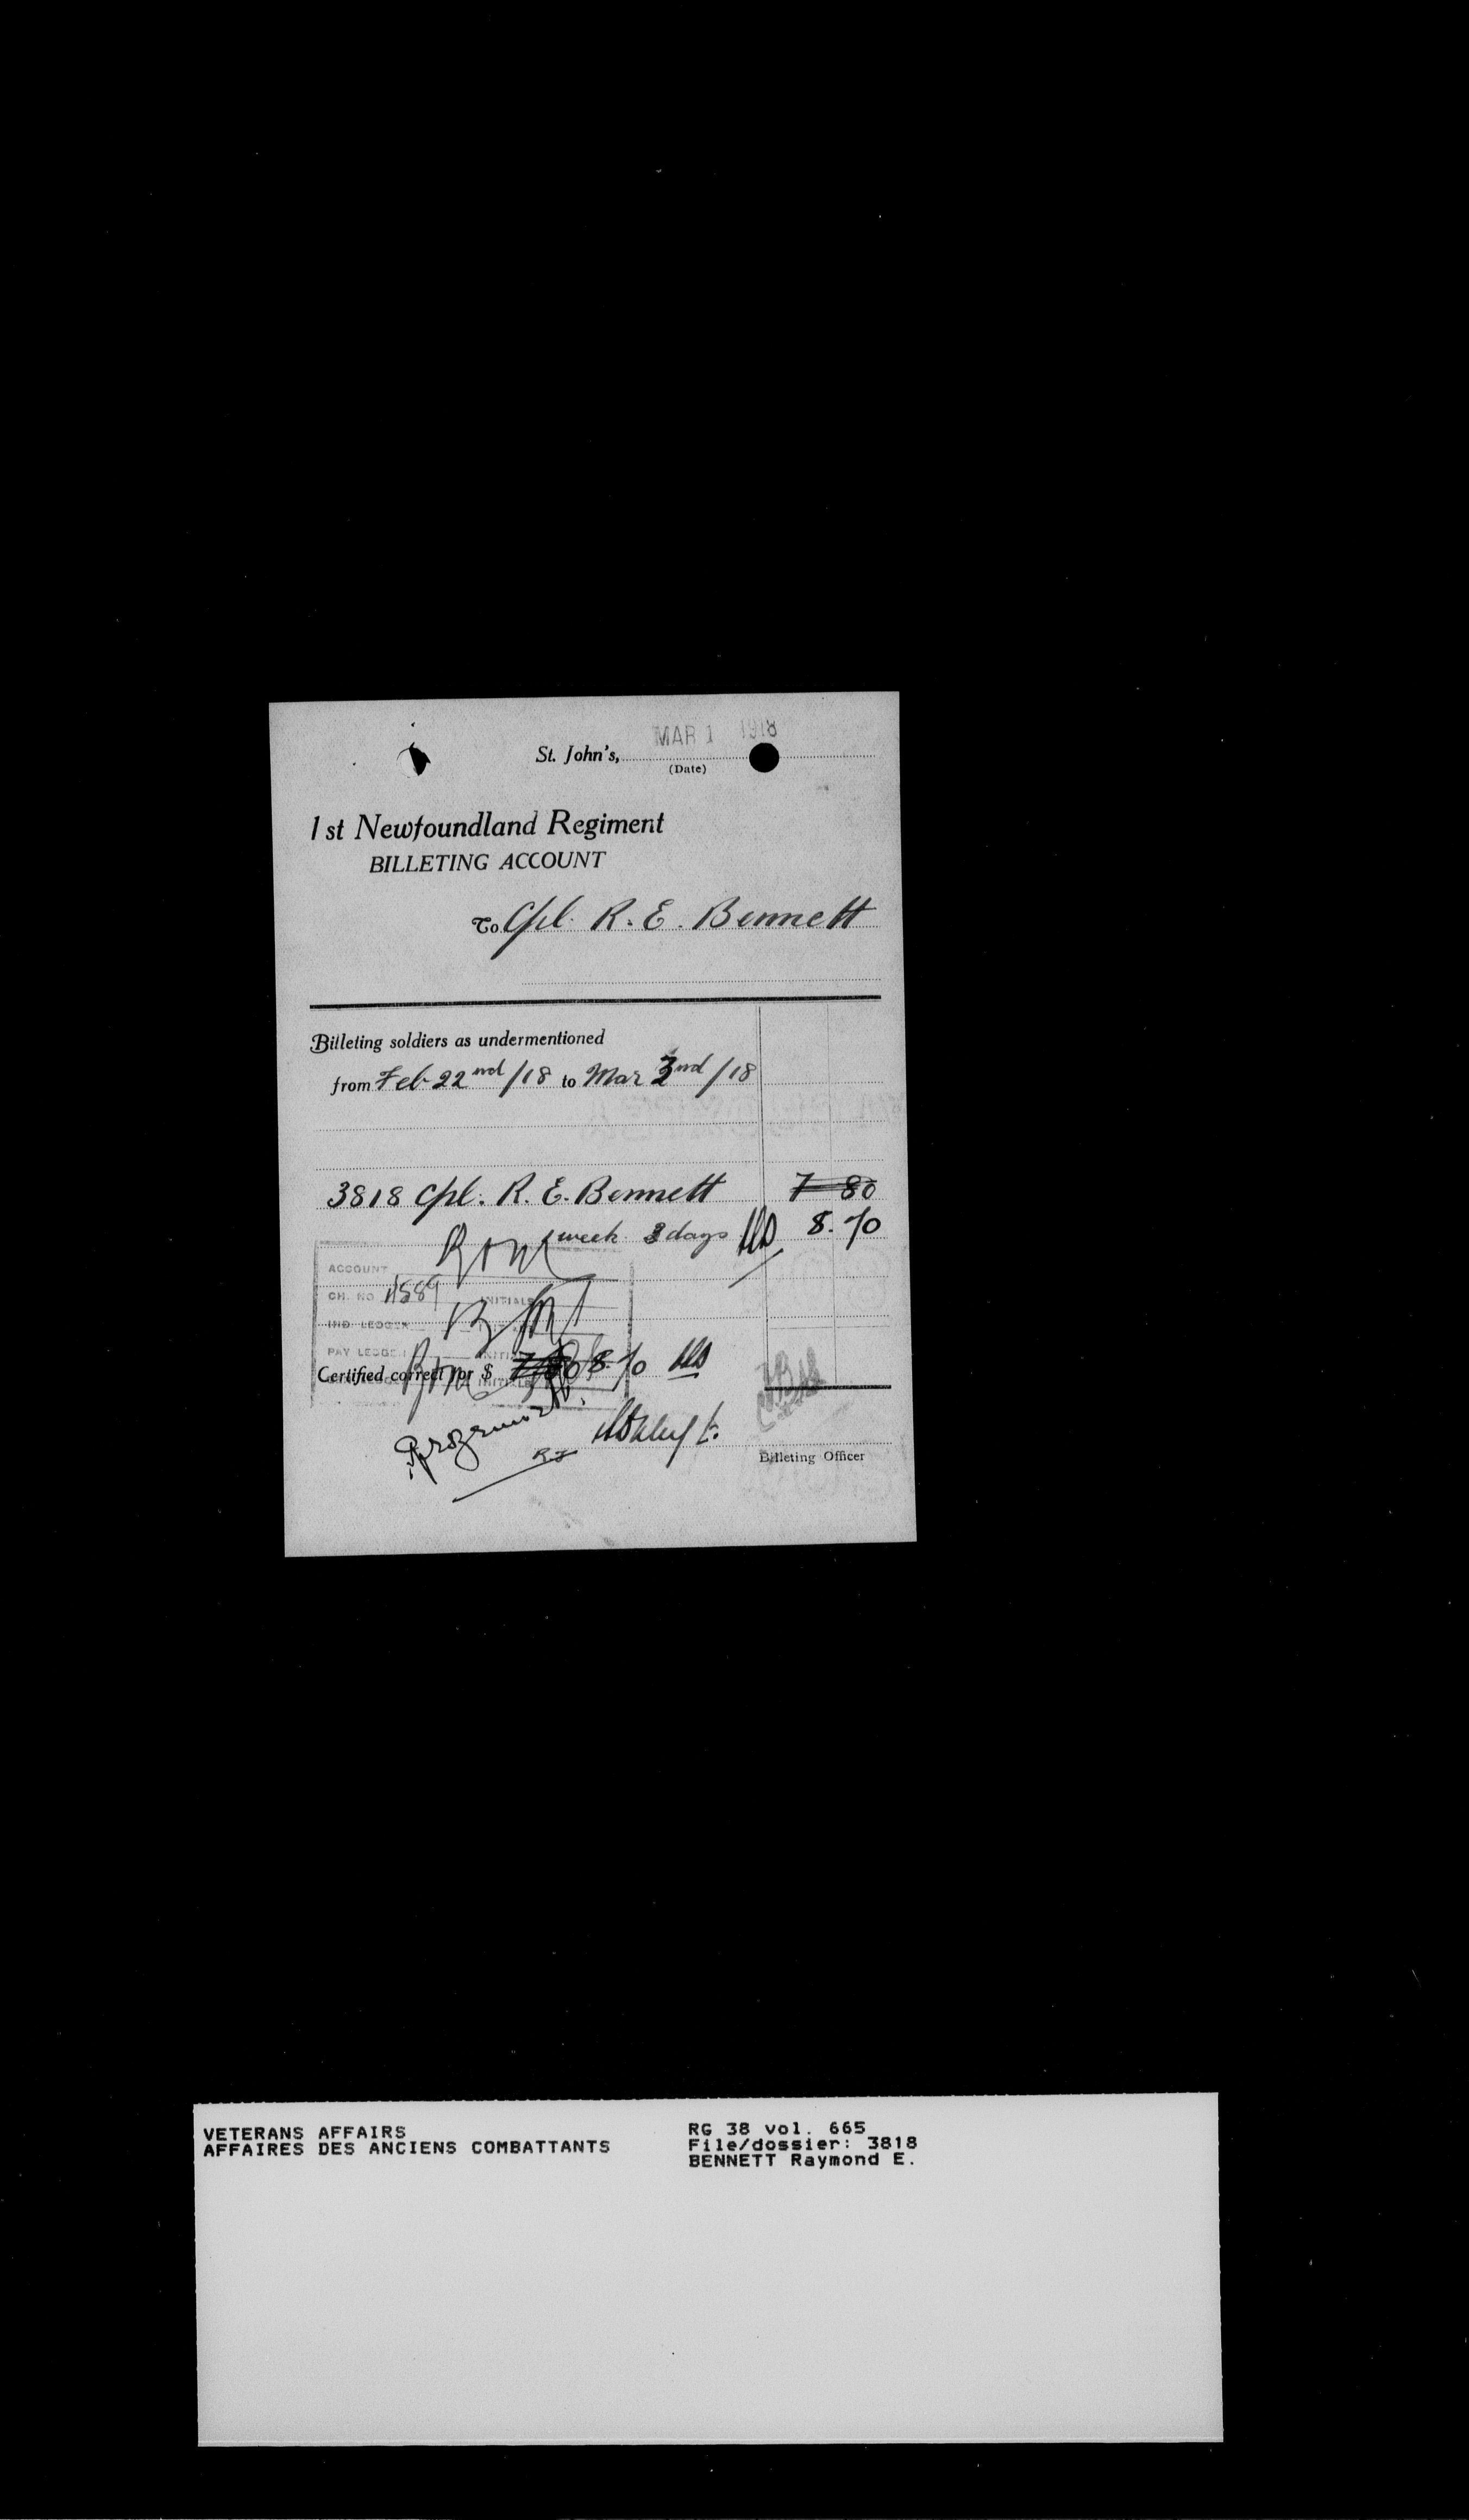 MAR 1 1918
St. John's,
(Date)
1st Newfoundland Regiment
BILLETING ACCOUNT
To Cpl. R. E. Bennett
Billeting soldiers as undermentioned
from Feb 22nd/18 to Mar 3nd/18
3818 Cpl. R. E. Bennett 7 80
week 3 days 8.70
ACCOUNT
CH. NO 11589 INITIALS
IND LEDGER
PAY LEDGER INITIALS
Certified correct for $ 7.80 8.70
INITIALS
Billeting Officer
VETERANS AFFAIRS
AFFAIRES DES ANCIENS COMBATTANTS
RG 38 vol. 665
File/dossier: 3818
BENNETT Raymond E.